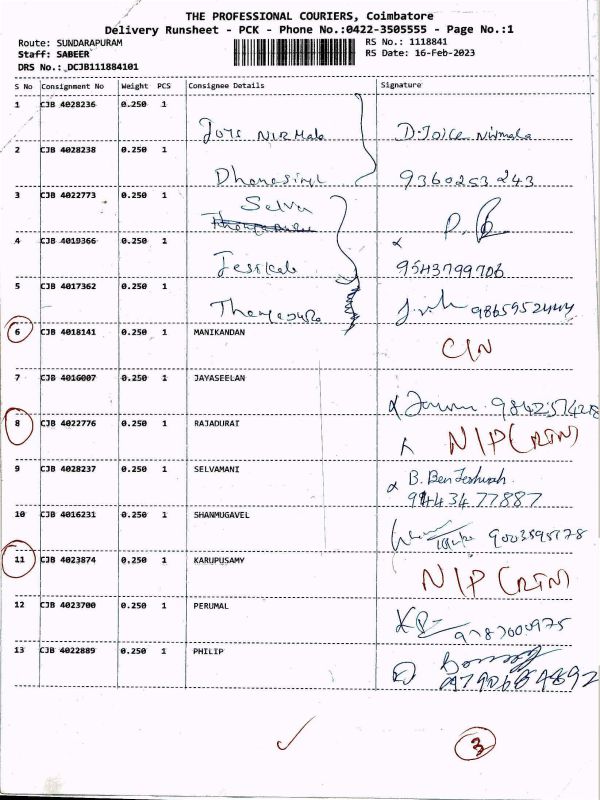 THE PROFESSIONAL COURIERS, Coimbatore
Delivery Runsheet - PCK - Phone No.:0422-3505555 - Page No.:1
Route: SUNDARAPURAM RS No.: 1118841
Staff: SABEER RS Date: 16-Feb-2023
DRS No.: DCJB111884101
S No Consignment No Weight PCS Consignee Details Signature
1 CJB 4028236 0.250 1
NIRMala D.Joice Nirmala
2 CJB 4028238 0.250 1
9360253243
3 CJB 4022773 0.250 1 Selva
4 CJB 4019366 0.250 1
9543799706
5 CJB 4017362 0.250 1
9865952444
6 CJB 4018141 0.250 1 MANIKANDAN
C/N
7 CJB 4016007 0.250 1 JAYASEELAN
8 CJB 4022776 0.250 1 RAJADURAI
N/P (RTN)
9 CJB 4028237 0.250 1 SELVAMANI B.
9443477887
10 CJB 4016231 0.250 1 SHANMUGAVEL
9003595178
11 CJB 4023874 0.250 1 KARUPUSAMY
N/P (RTN)
12 CJB 4023700 0.250 1 PERUMAL
13 CJB 4022889 0.250 1 PHILIP
3